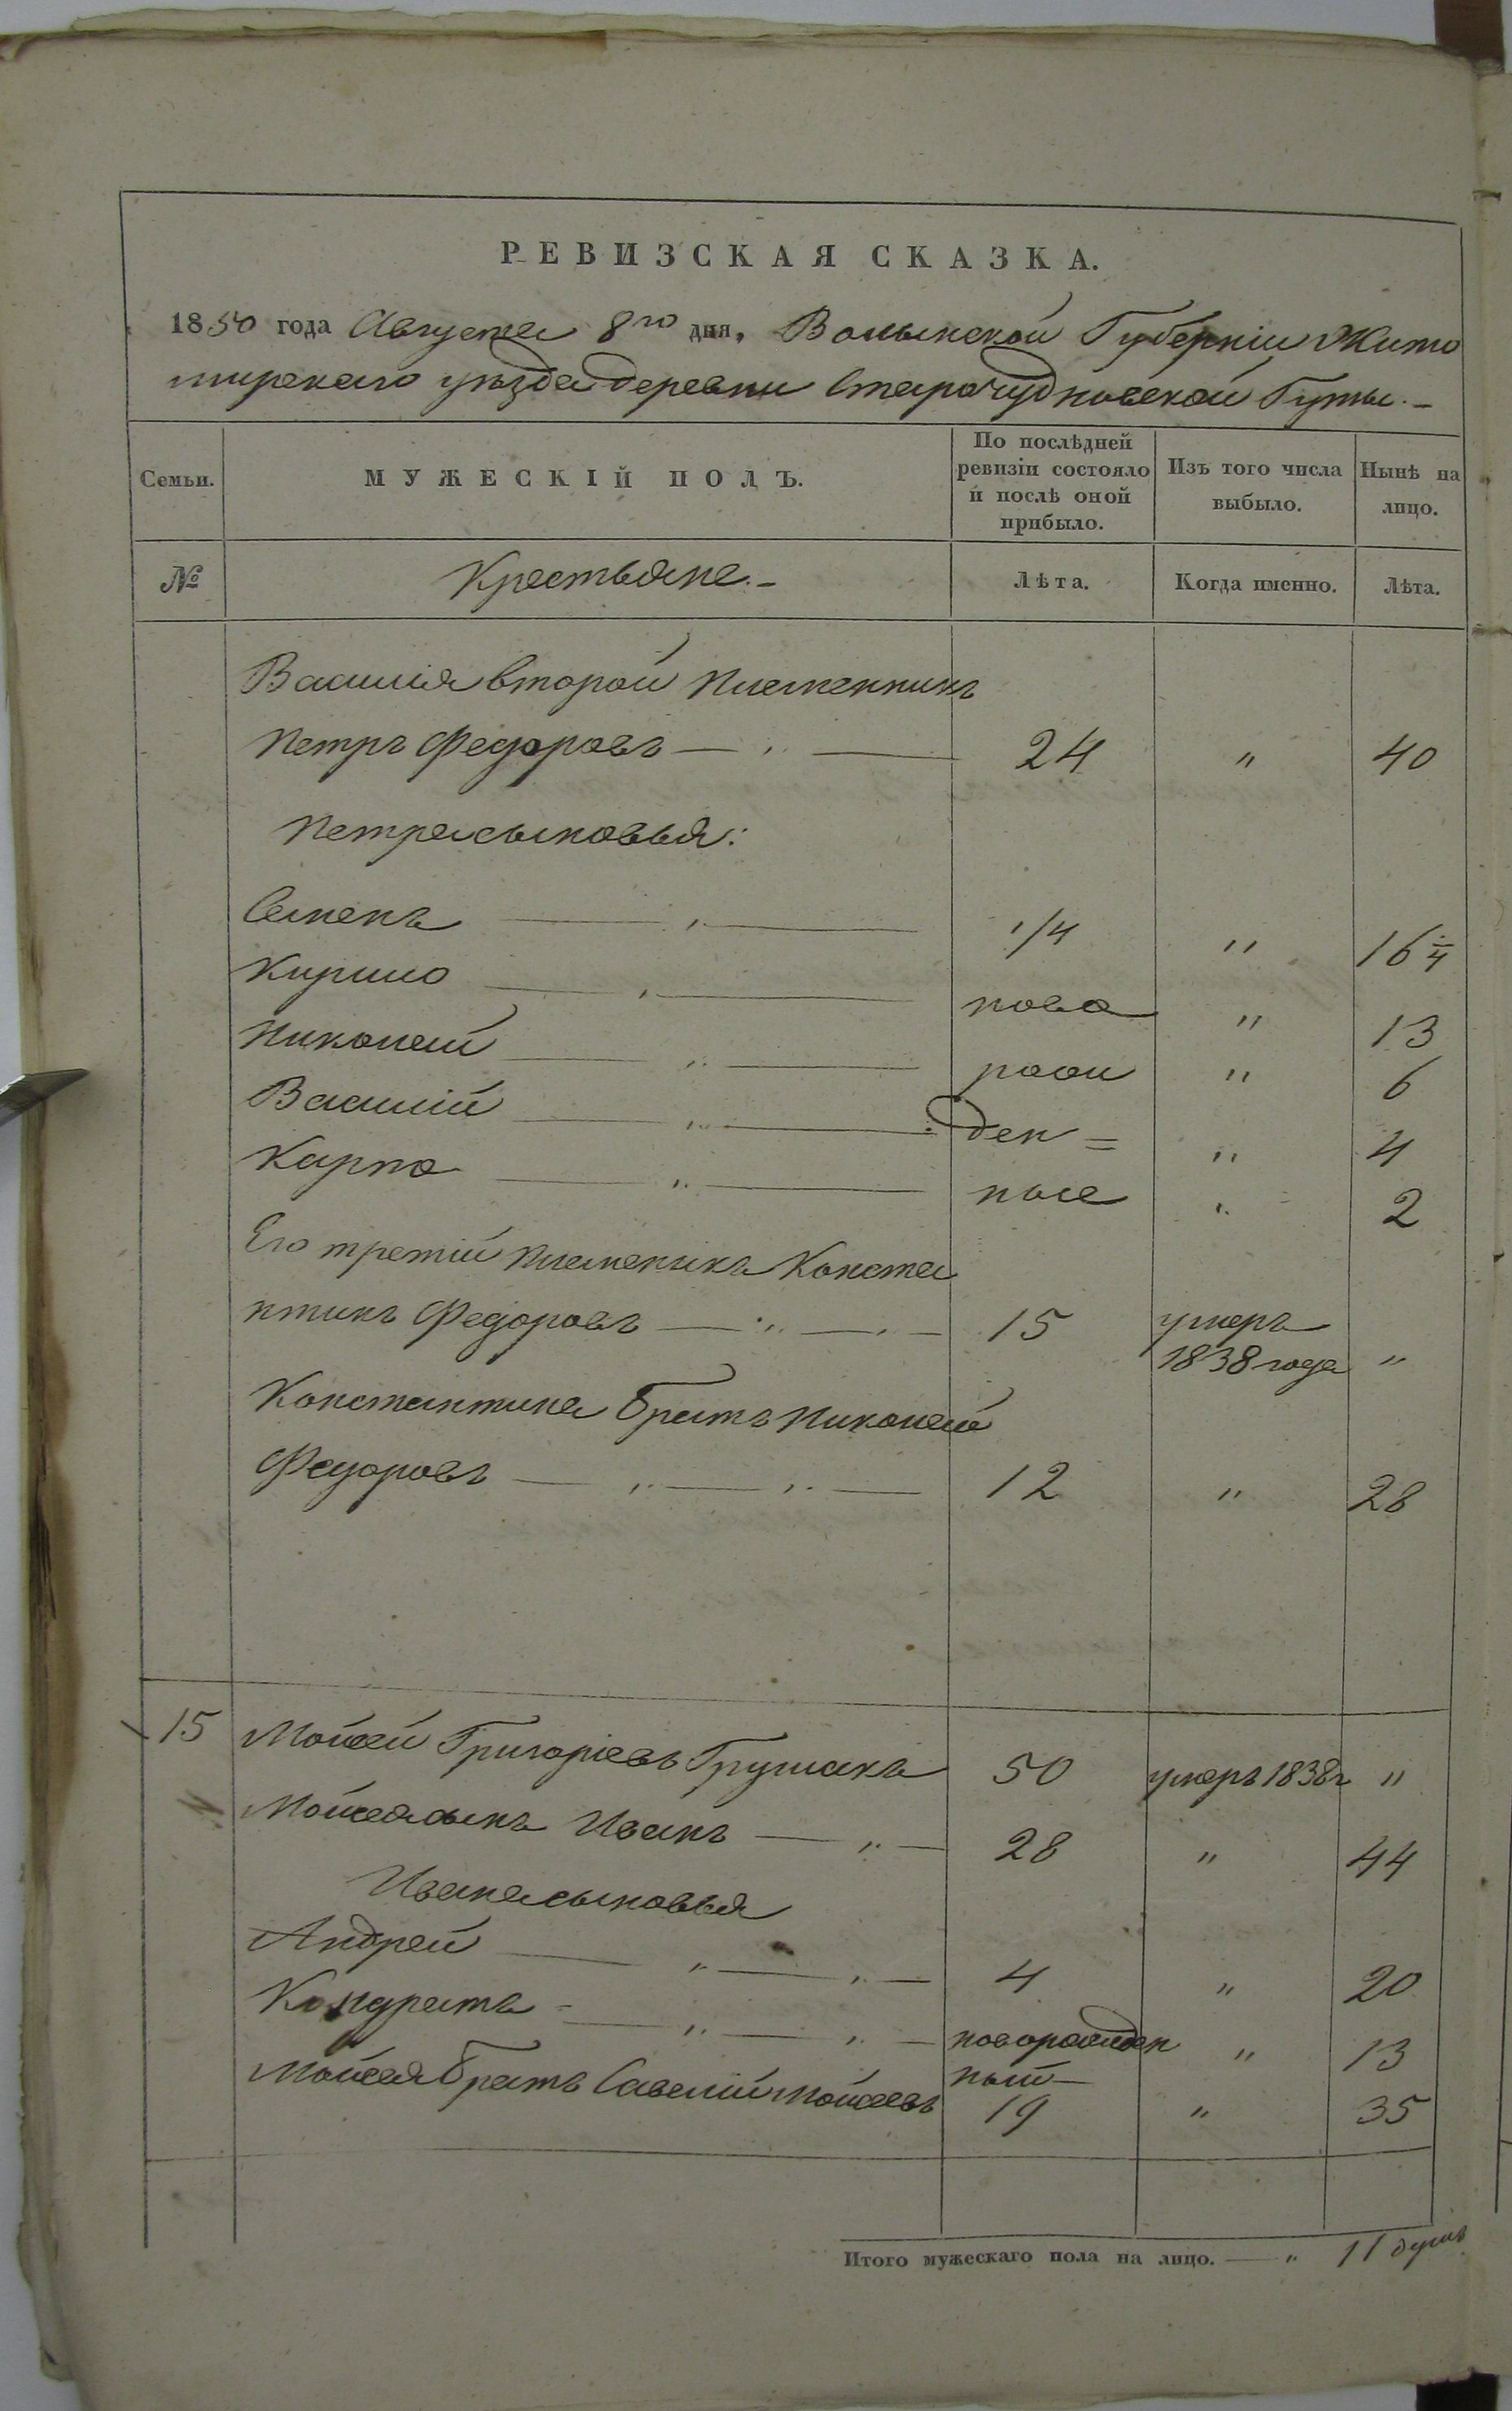 РЕВИЗСКАЯ СКАЗКА.
1850 года Августа 8го дня, Волынской Губерніи Жито
мирскаго уѣзда деревни Старочудновской Гуты.-
Семьи. МУЖЕСКІЙ ПОЛЪ. По послѣдней ревизіи состояло и послѣ оной прибыло. Изъ того числа выбыло. Нынѣ на лицо.
№ Крестьяне.- Лѣта. Когда именно. Лѣта.
Василія второй племенникъ
Петръ Федоровъ — „ — 24 „ 40
Петра сыновья:
Семенъ — „ — 1/4 „ 16 1/4
Кирило — „ — ново „ 13
Николай — „ — рожи „ 6
Василій — „ — ден= „ 4
Карпо — „ — ные „ 2
Его третій племеникъ Конста
нтинъ Федоровъ — „ — „ — 15 умеръ
1838 года „
Константина братъ Николай
Федоровъ — „ — „ — 12 „ 28
15 Мойсей Григоріевъ Грушакъ 50 умеръ 1838г „
Мойсея сынъ Иванъ — „ — 28 „ 44
Ивана сыновья
Андрей — „ — „ — 4 „ 20
Кондратъ - — „ — „ — новорожден „ 13
ный —
Мойсея братъ Савелій Мойсеевъ 19 „ 35
Итого мужескаго пола на лицо. — „ 11 душъ